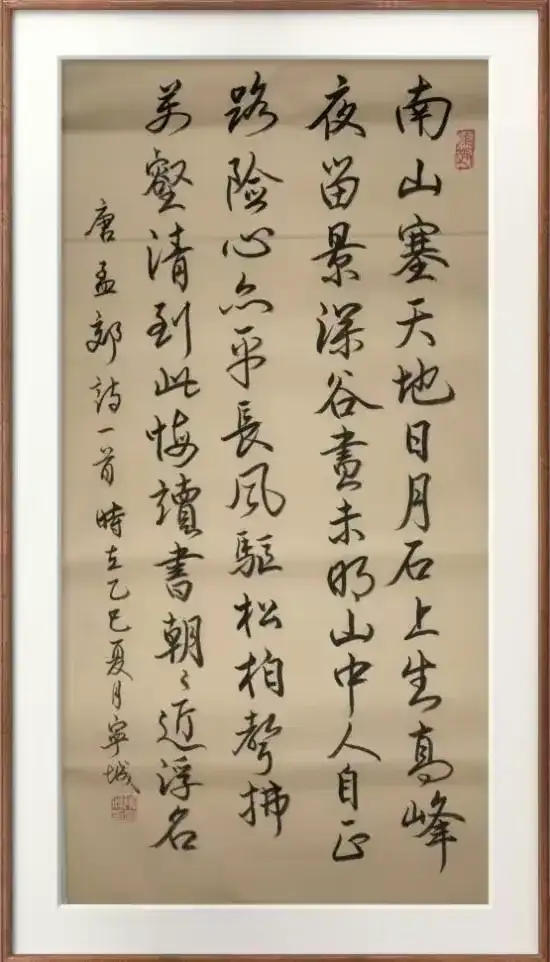 南山塞天地日月石上生高峰
夜留景深谷晝未明山中人自正
路險心亦平長風驅松柏聲拂
萬壑清到此悔讀書朝〻近浮名
唐孟郊詩一首時在乙巳夏月寧城